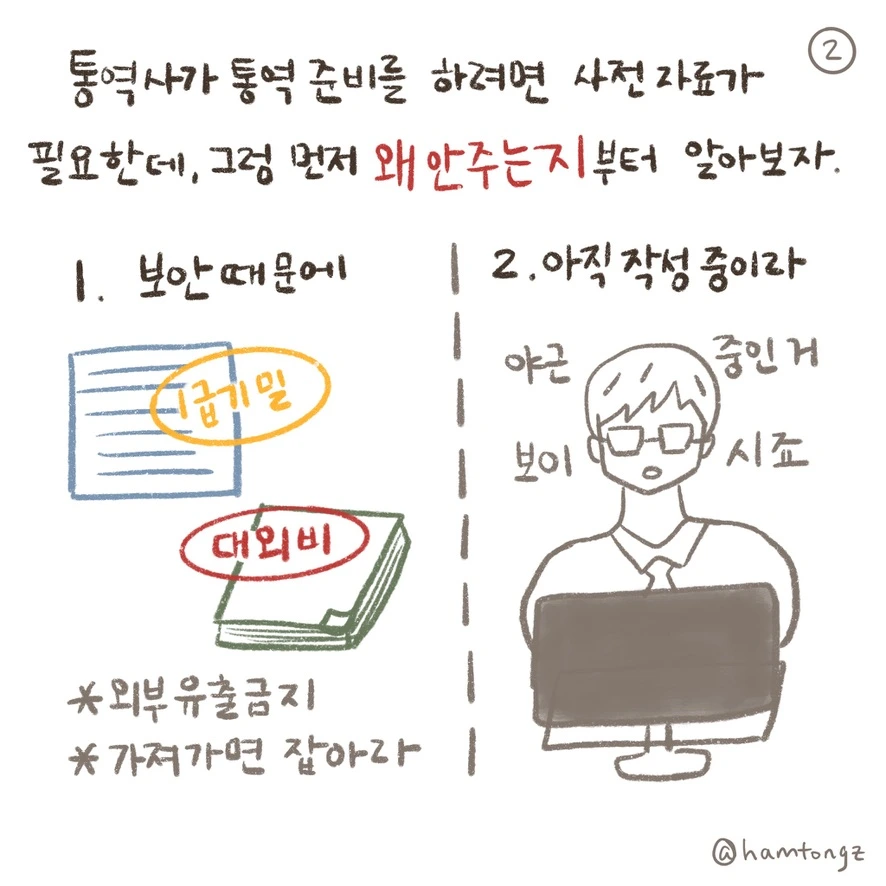 2
통역사가 통역 준비를 하려면 사전 자료가
필요한데, 그럼 먼저 왜 안주는지부터 알아보자.
1. 보안 때문에
1급기밀
대외비
*외부유출금지
*가져가면 잡아라
2. 아직 작성 중이라
야근 중인거
보이시죠
@hamtongz